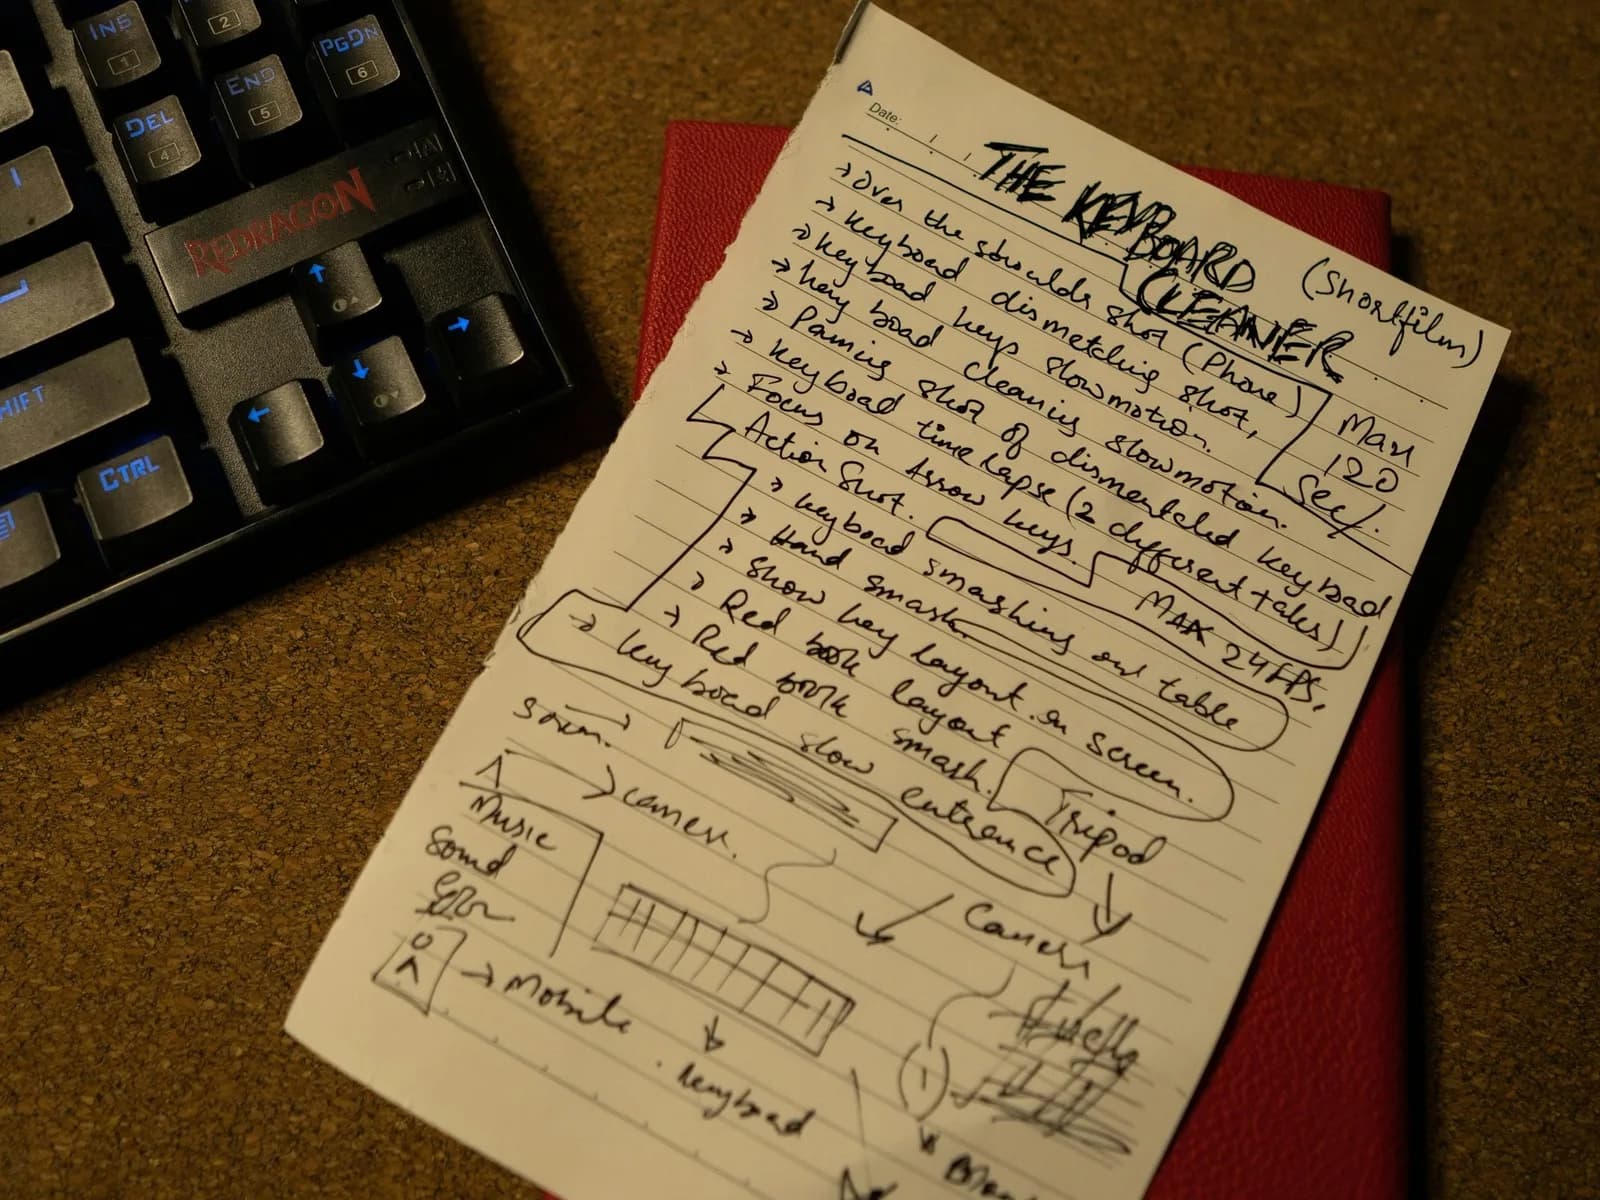 INS
1
2
PGDN
6
END
5
DEL
4
REDRAGON
HIFT
CTRL
Date:
THE KEYBOARD
CLEANER
(Shortfilm)
→ Over the shoulder shot (Phone)
→ Keyboard dismetching shot,
→ Keyboad keys slowmotion.
→ Key boad cleaning slowmotion.
→ Panning shot of dismentled keyboad
→ Keyboad timelapse (2 different takes)
→ Focus on Arrow keys.
Max
120
Sec/.
MAX 24 FPS.
Action Shot.
→ Keyboad smashing on table
→ Hand smash
→ Show key layout on screen.
→ Red book layout
→ Red book smash.
→ Key boad slow entrance
Tripod
Camera
camera.
Music
Sound
→ Mobile
keyboad